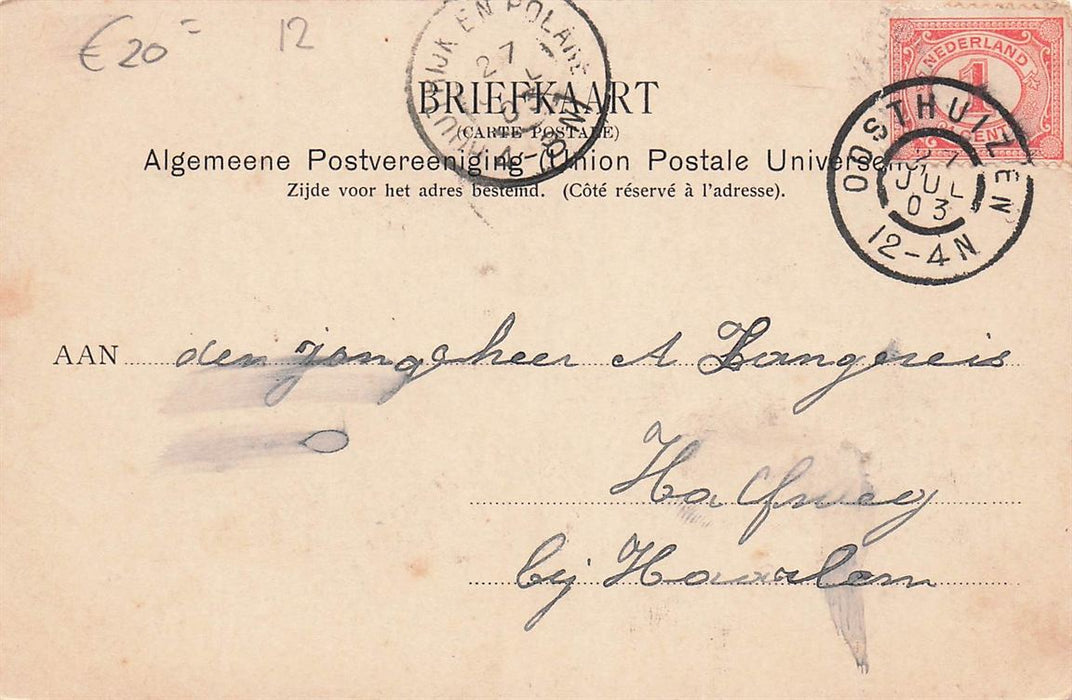 € 20 =
12
NEDERLAND
1
CENT
RIJK EN POLANE
27
4-8N
OOSTHUIZEN
27
JUL
03
12-4N
BRIEFKAART
(CARTE POSTALE)
Algemeene Postvereeniging (Union Postale Universelle)
Zijde voor het adres bestemd. (Côté réservé à l'adresse).
AAN den jongeheer A Langereis
Halfweg
bij Haarlem